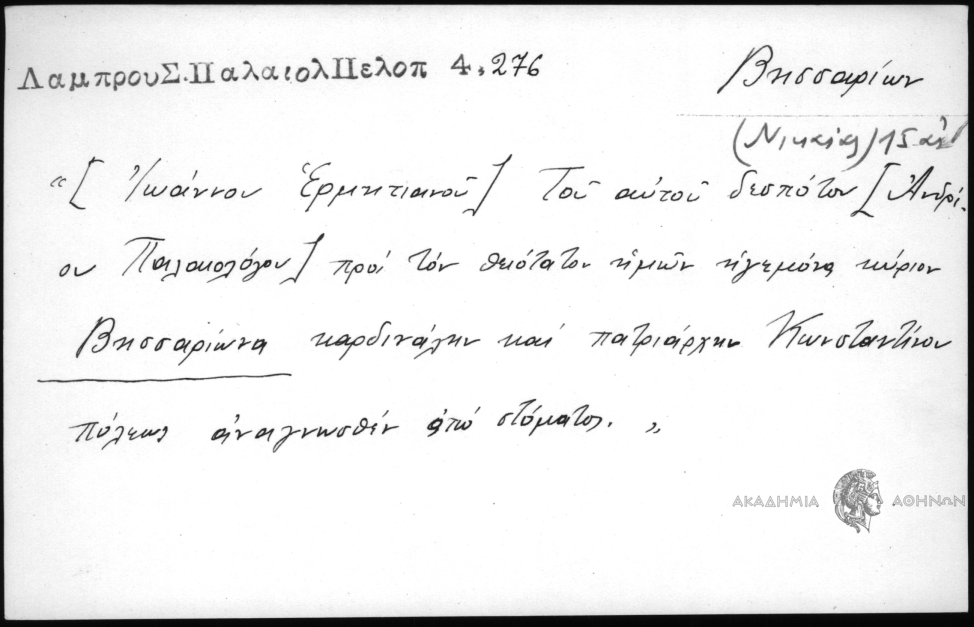 ΛαμπρουΣ.ΠαλαιολΠελοπ 4,276
Βησσαρίων
(Νικαίας) 15 αἰ
"[Ἰωάννου Ἑρμητιανοῦ] Τοῦ αὐτοῦ δεσπότου [Ἀνδρέ-
ου Παλαιολόγου] πρός τόν θειότατον ἡμῶν ἡγεμόνα κύριον
Βησσαρίωνα καρδινάλην καί πατριάρχην Κωνσταντίνου
πόλεως ἀναγνωσθέν ἀπό στόματος. "
ΑΚΑΔΗΜΙΑ ΑΘΗΝΩΝ